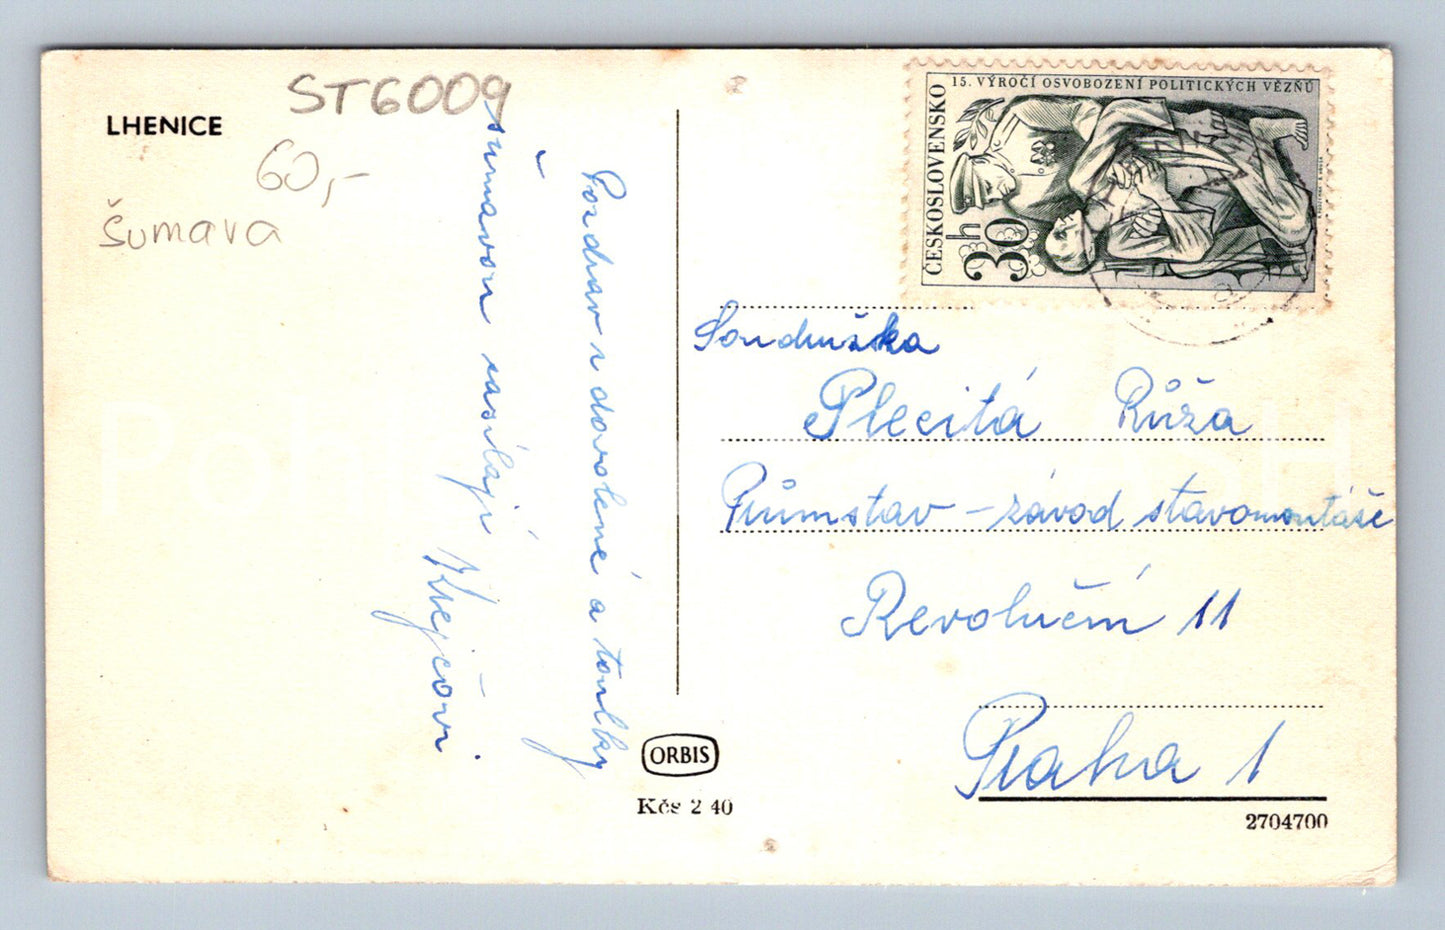 LHENICE
ST6009
60,-
Šumava
Pozdrav z dovolené a toulky
šumavou zasílají Krejčovi
15. VÝROČÍ OSVOBOZENÍ POLITICKÝCH VĚZŇŮ
ČESKOSLOVENSKO
30 h
Soudružka
Plecitá Růža
Průmstav - závod stavomontáže
Revoluční 11
Praha 1
ORBIS
Kčs 2 40
2704700